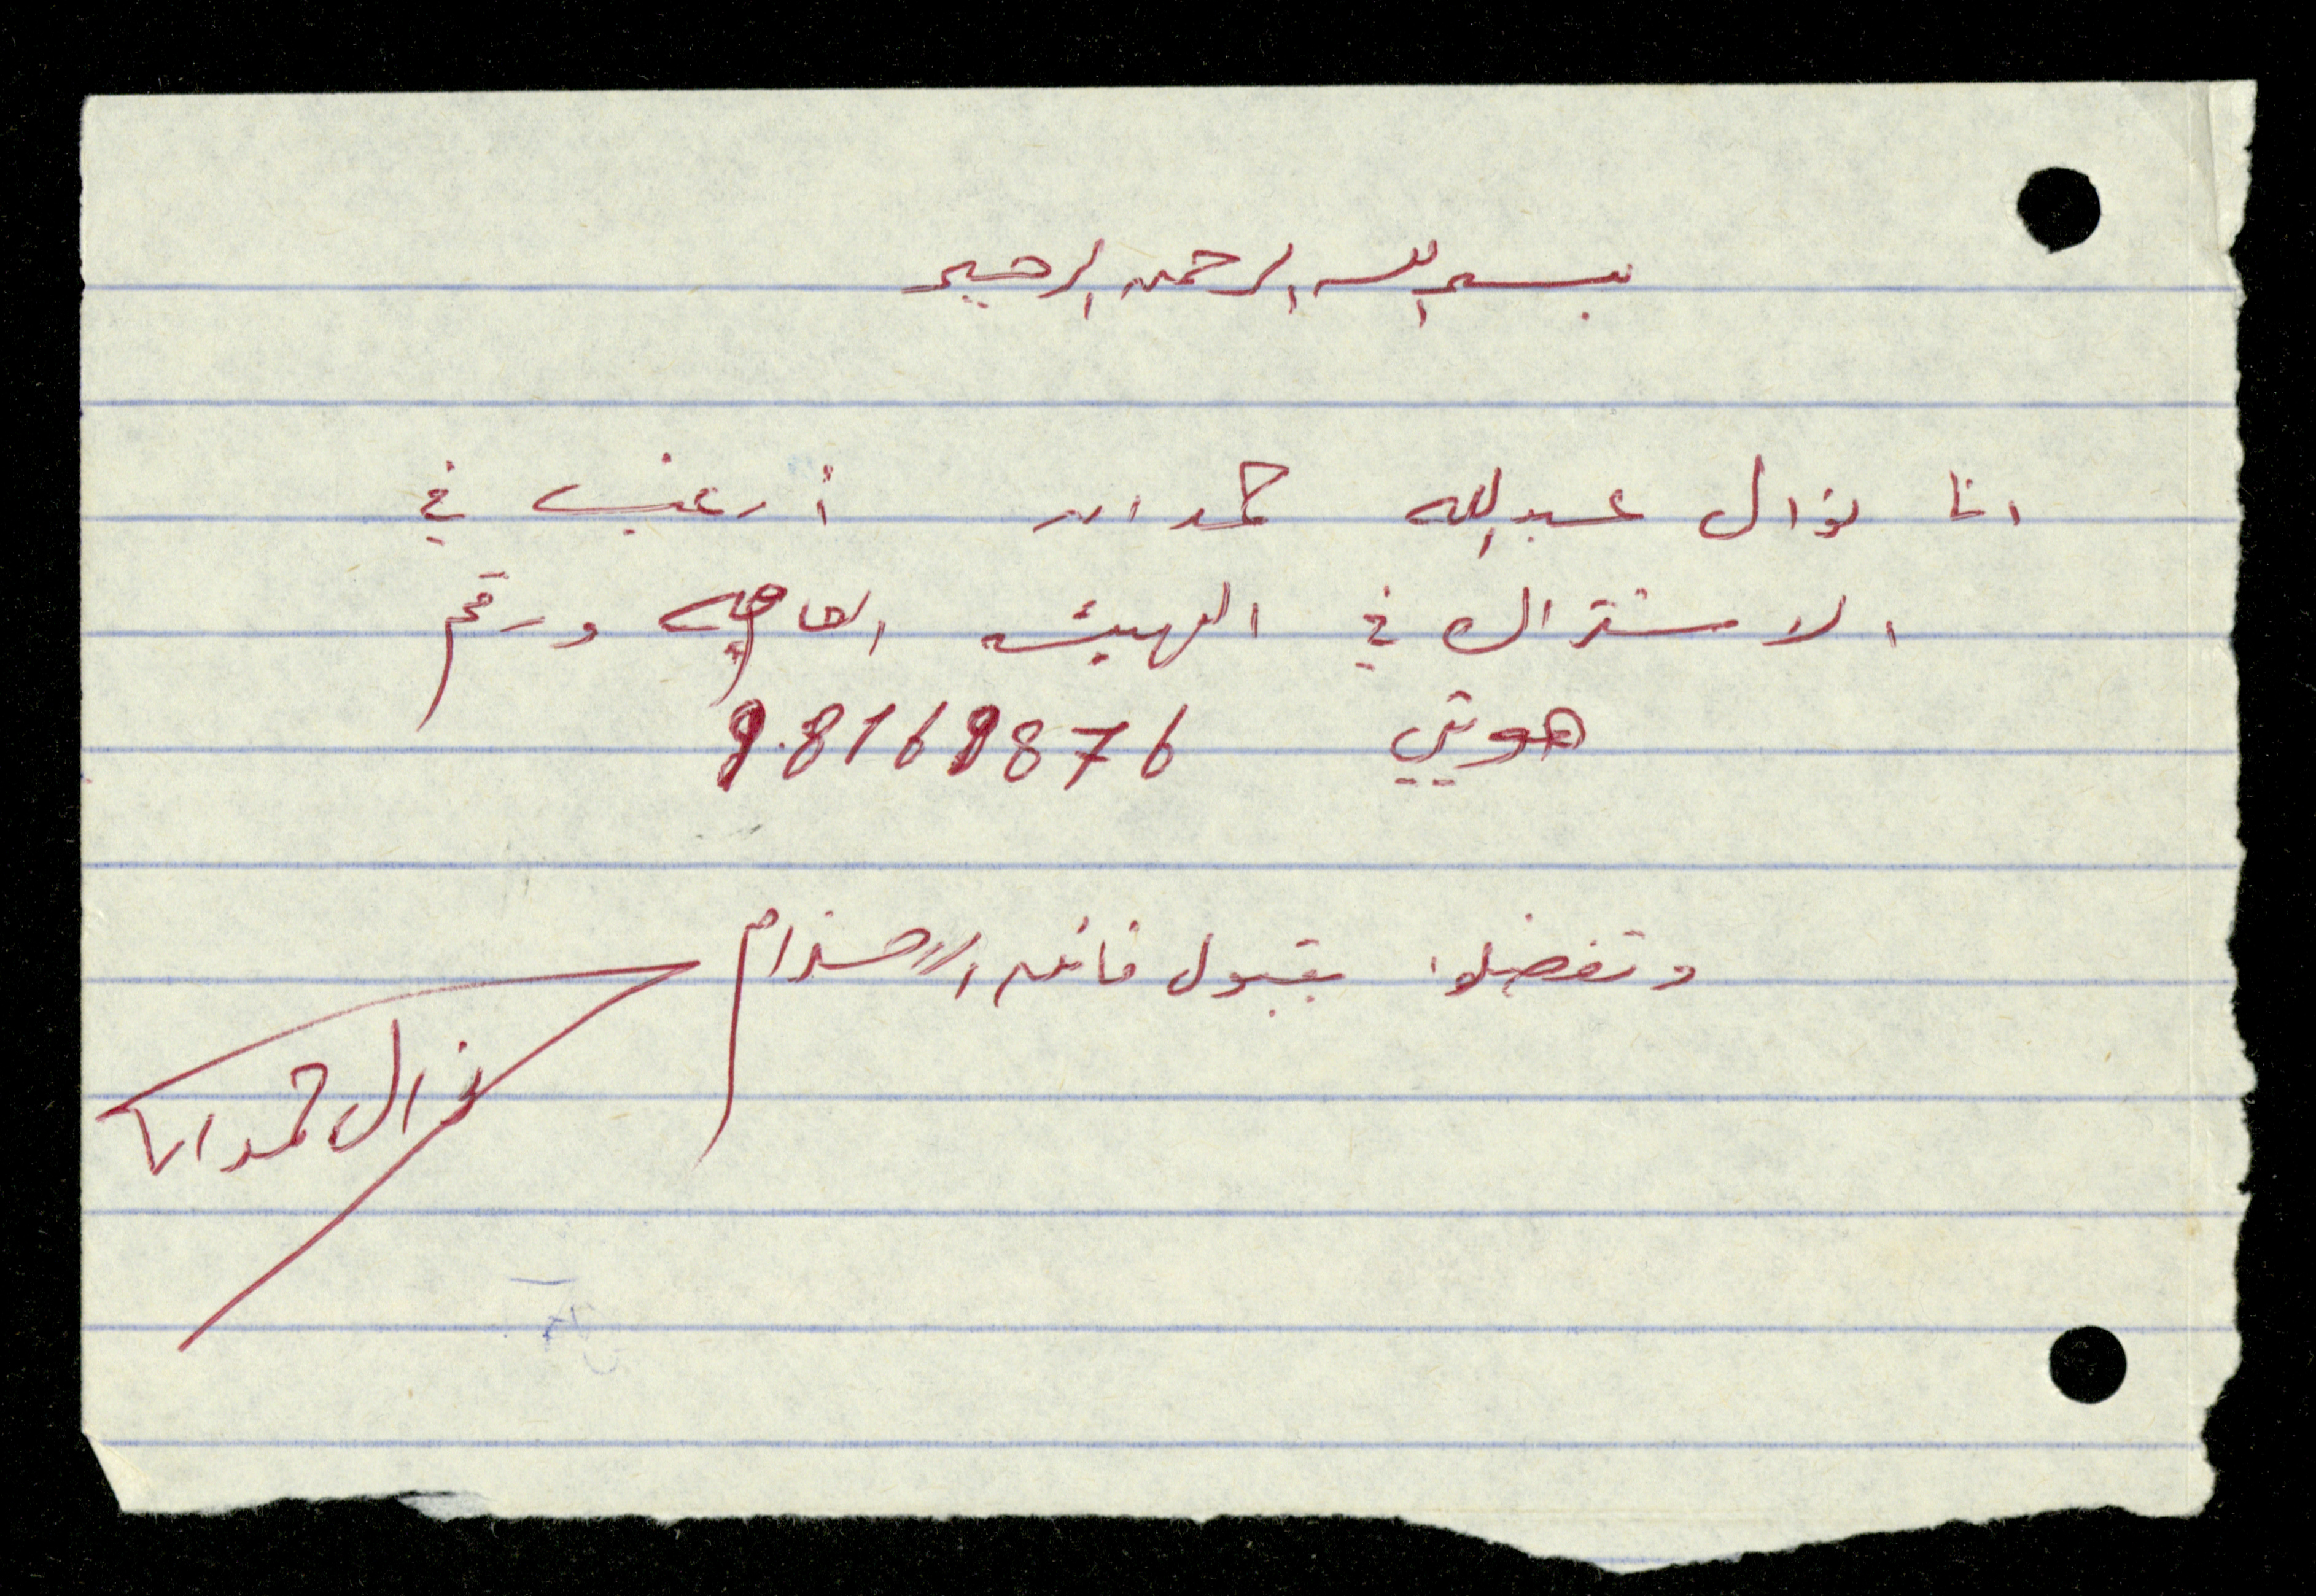 بسم الله الرحمن الرحيم
انا نزال عبدالله حمدان أرغب في
الاشتراك في الهيئه العامه ورقم
هويتي 98168876
وتفضلوا بقبول فائق الاحترام
نزال حمدان